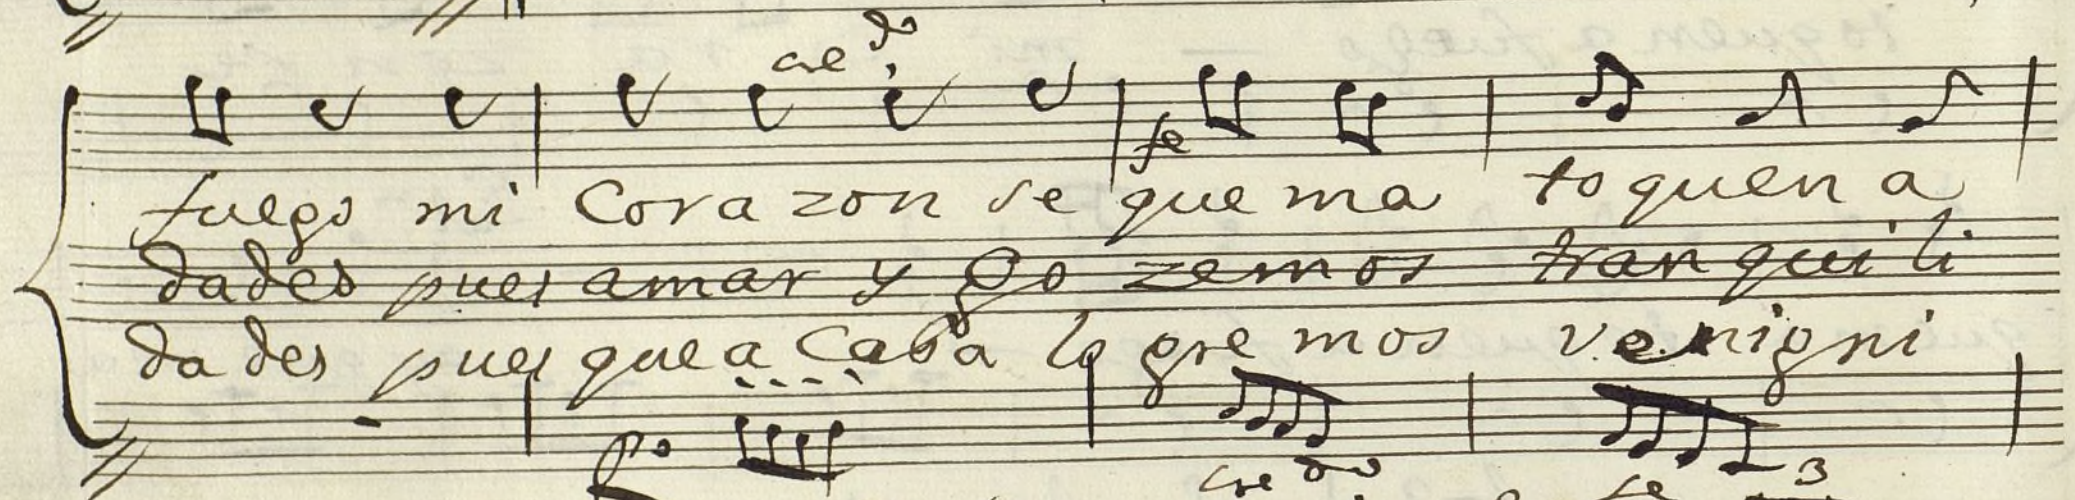 cre do
fe
fuego mi Corazon se quema toquen a
dades pues amar y gozemos tranquili
dades pues que acaba logremos venigni
po
cre do fe 3